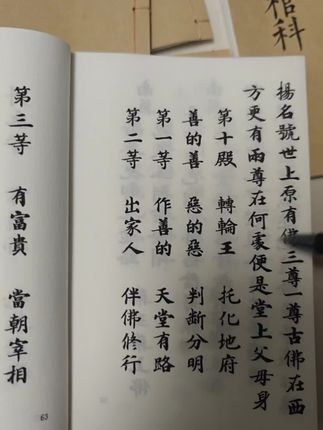 棺科
揚名號世上原有佛三尊一尊古佛在西
方更有兩尊在何處便是堂上父母身
第十殿 轉輪王 托化地府
善的善 惡的惡 判斷分明
第一等 作善的 天堂有路
第二等 出家人 伴佛修行
第三等 有富貴 當朝宰相
63